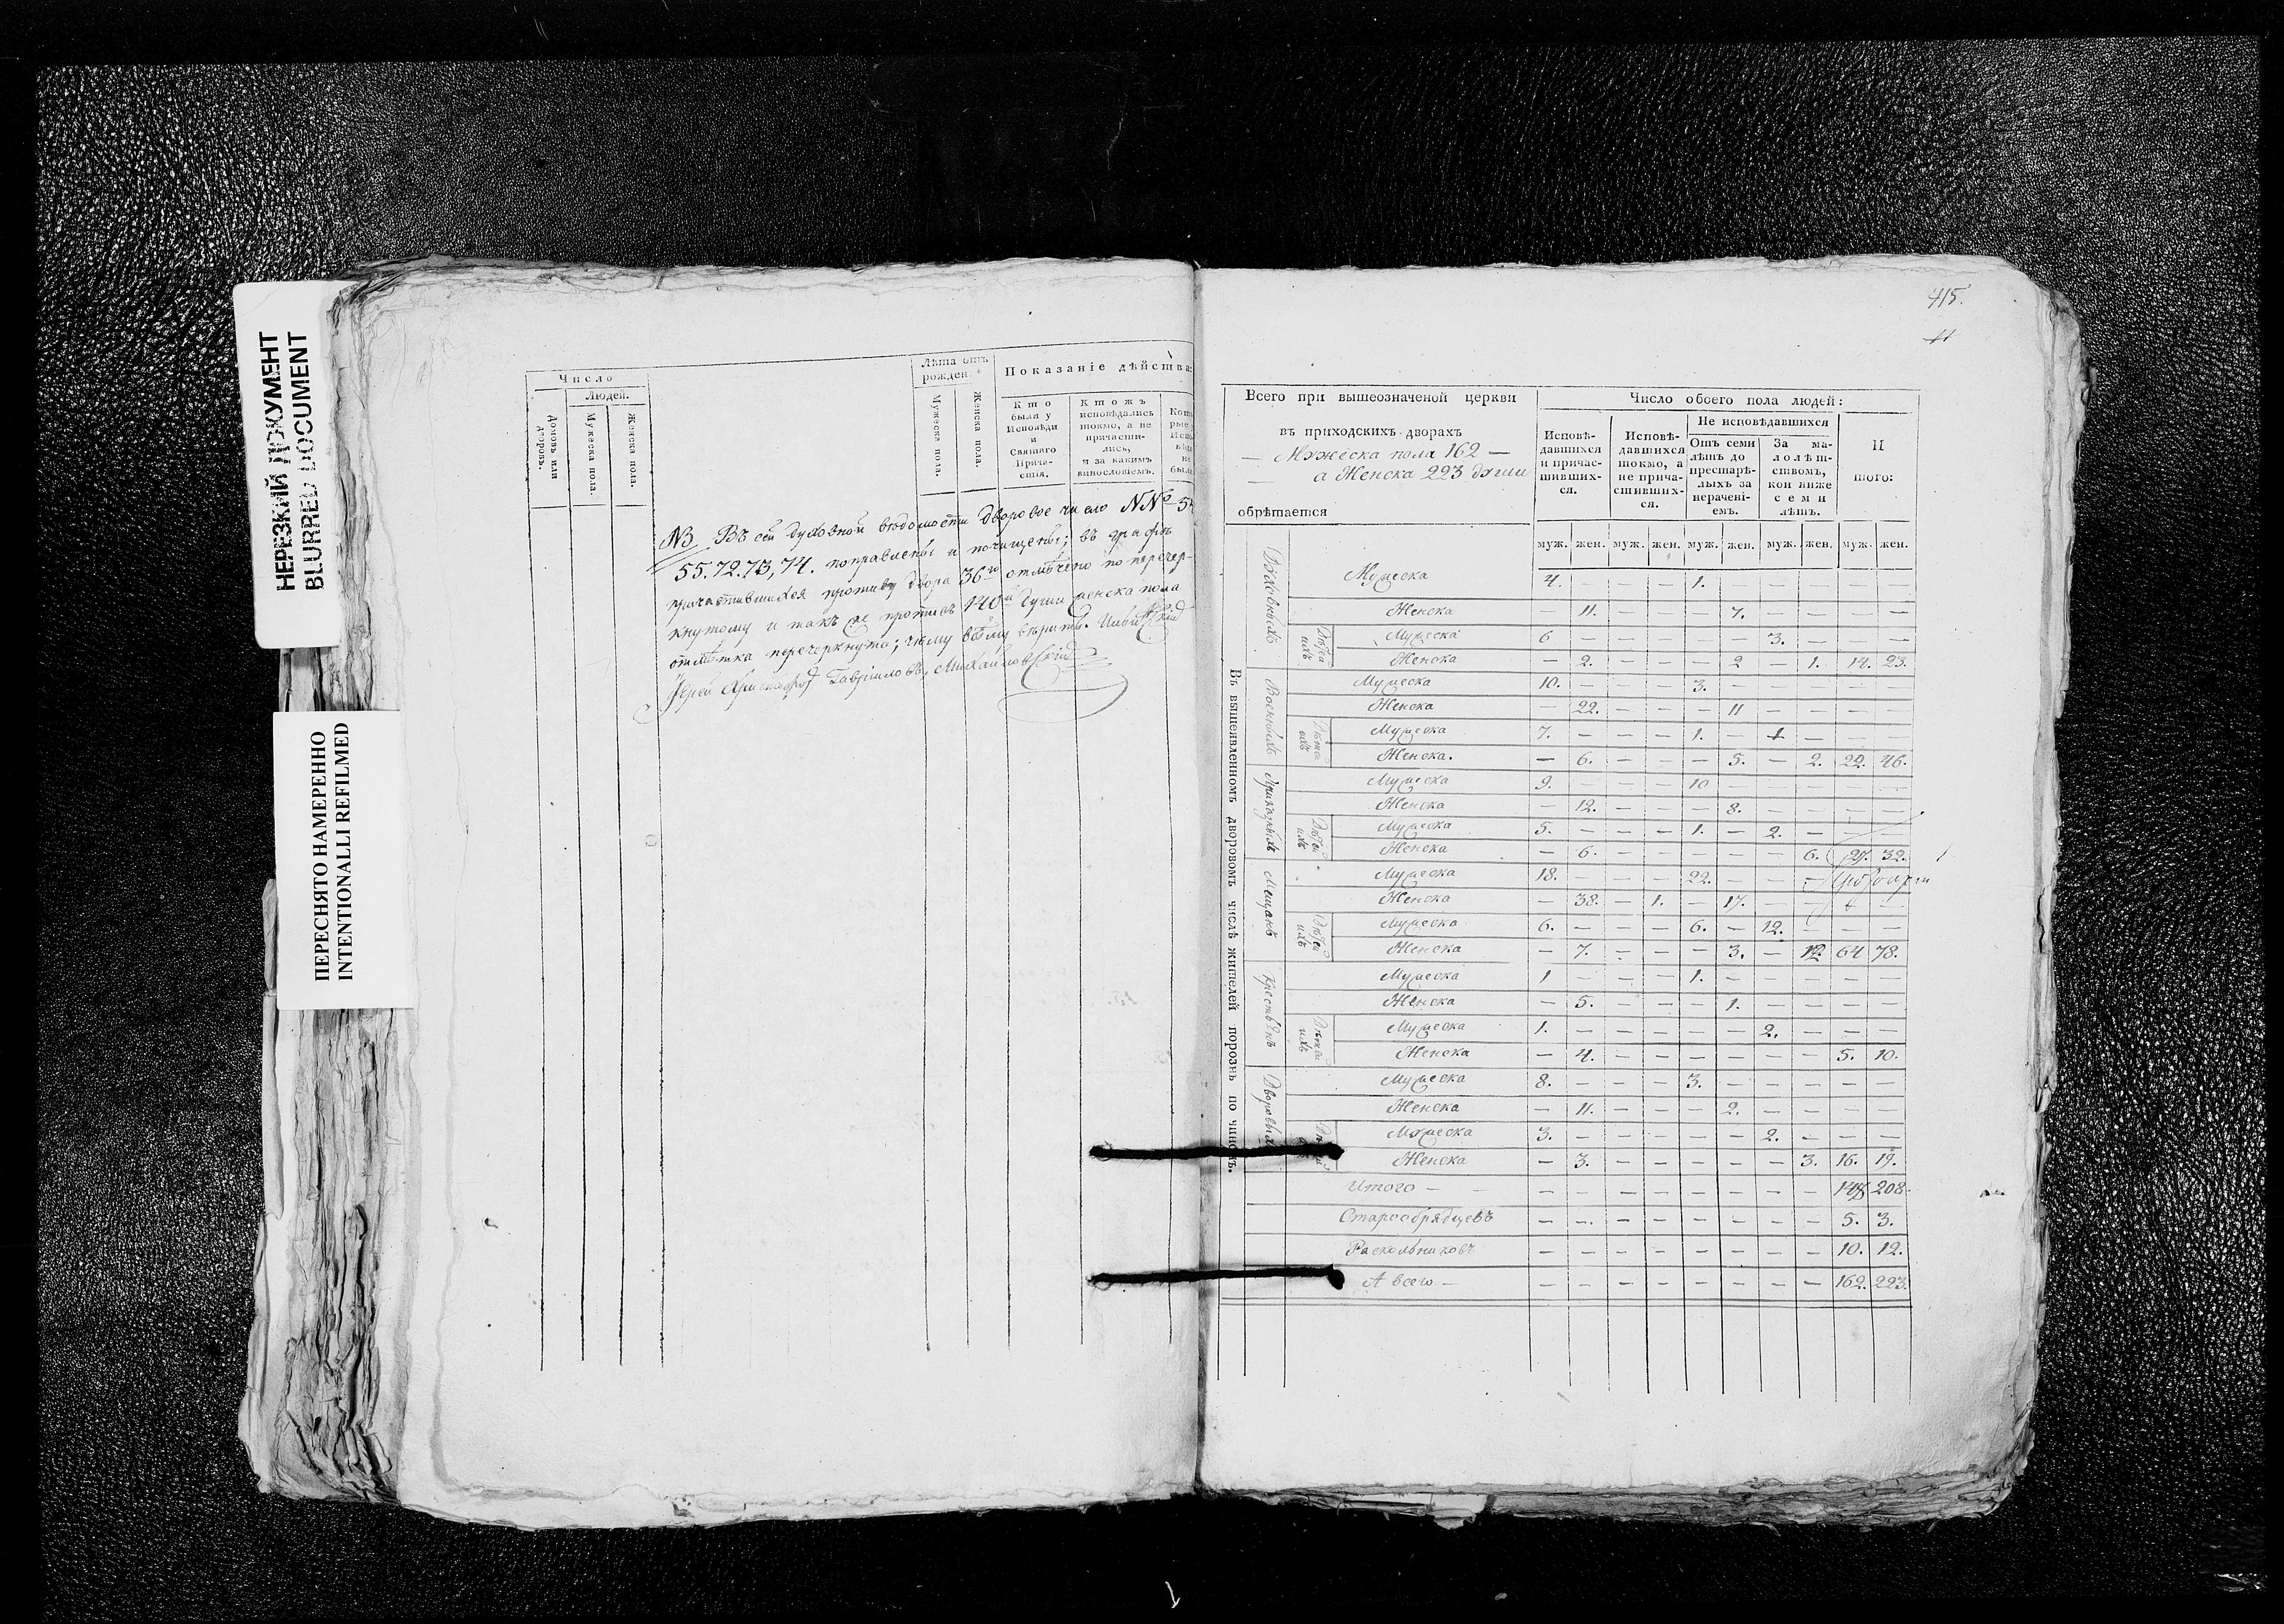 НЕРЕЗКИЙ ДОКУМЕНТ
BLURRED DOCUMENT
ПЕРЕСНЯТО НАМЕРЕННО
INTENTIONALLI REFILMED
Число
Людей.
Домовъ или дворовъ.
Мужеска пола.
Женска пола.
Лѣта отъ рожден.
Мужеска пола.
Женска пола.
Показаніе дѣйства:
Кто были у Исповѣди и Святаго Прича-стія.
Ктожъ исповѣдались токмо, а не причасти-лись, и за какимъ винословіемъ.
NB Въ сей духовной вѣдомости дворовое число NNº 54
55. 72. 73, 74. поправлены и почищены; въ графѣ
причастившихся противу двора 36го отмѣчено по перечер-
кнутому и такъ же противъ 140й души женска пола
отмѣтка перечеркнута; чему всему вѣрить.
Іерей Гавріиловъ Михайловскій
715.
Всего при вышеозначеной церкви
въ приходскихъ дворахъ
— Мужеска пола 162 —
— а Женска 223 души
обрѣтается
Число обоего пола людей:
Исповѣ-давшихся и причас-тивших-ся.
Исповѣ-давшихся токмо, а не прича-стивших-ся.
Не исповѣдавшихся
Отъ семи лѣтъ до престарѣ-лыхъ за нерачені-емъ.
За ма-лолѣт-ствомъ, кои ниже семи лѣтъ.
И того:
муж. жен. муж. жен. муж. жен. муж. жен. муж. жен.
Въ вышеявленномъ дворовомъ числѣ жителей порознь по чинамъ.
Духовныхъ
Мужеска 4. 1.
Женска — 11. — — — 7. — — —
Дѣтей ихъ
Мужеска 6 — — — — — 3. — — —
Женска — 2. — — — 2 — 1. 14. 23.
Военныхъ
Мужеска 10. — — — 3. — — — — —
Женска — 22. — — — 11 — — — —
Дѣтей ихъ
Мужеска 7. — — — 1. — 1 — — —
Женска. — 6. — — — 5. — 2. 22. 46.
Приказныхъ
Мужеска 9. — — — 10 — — — — —
Женска — 12. — — — 8. — — — —
Дѣтей ихъ
Мужеска 5. — — — 1. — 2. — — —
Женска — 6. — — — — — 6. 27. 32.
Мещанъ
Мужеска 18. — — — 22. — — —
Женска — 38. — 1. — 17. — — — —
Дѣтей ихъ
Мужеска 6. — — — 6. — 12. — — —
Женска — 7. — — — 3. — 12 64 78.
Крестьянъ
Мужеска 1 — — — 1. — — — — —
Женска — 5. — — — 1. — — — —
Дѣтей ихъ
Мужеска 1. — — — — — 2. — — —
Женска — 4. — — — — — — 5. 10.
Дворовыхъ
Мужеска 8. — — — 3. — — — — —
Женска — 11. — — — 2. — — — —
Мужеска 3. — — — — — 2. — — —
Женска — 3. — — — — — 3. 16. 19.
Итого — — — — — — — — — — 208.
Старообрядцевъ — — — — — — — — 5. 3.
Раскольниковъ — — — — — — — — 10. 12.
А всего — — — — — — — — — 162. 223.